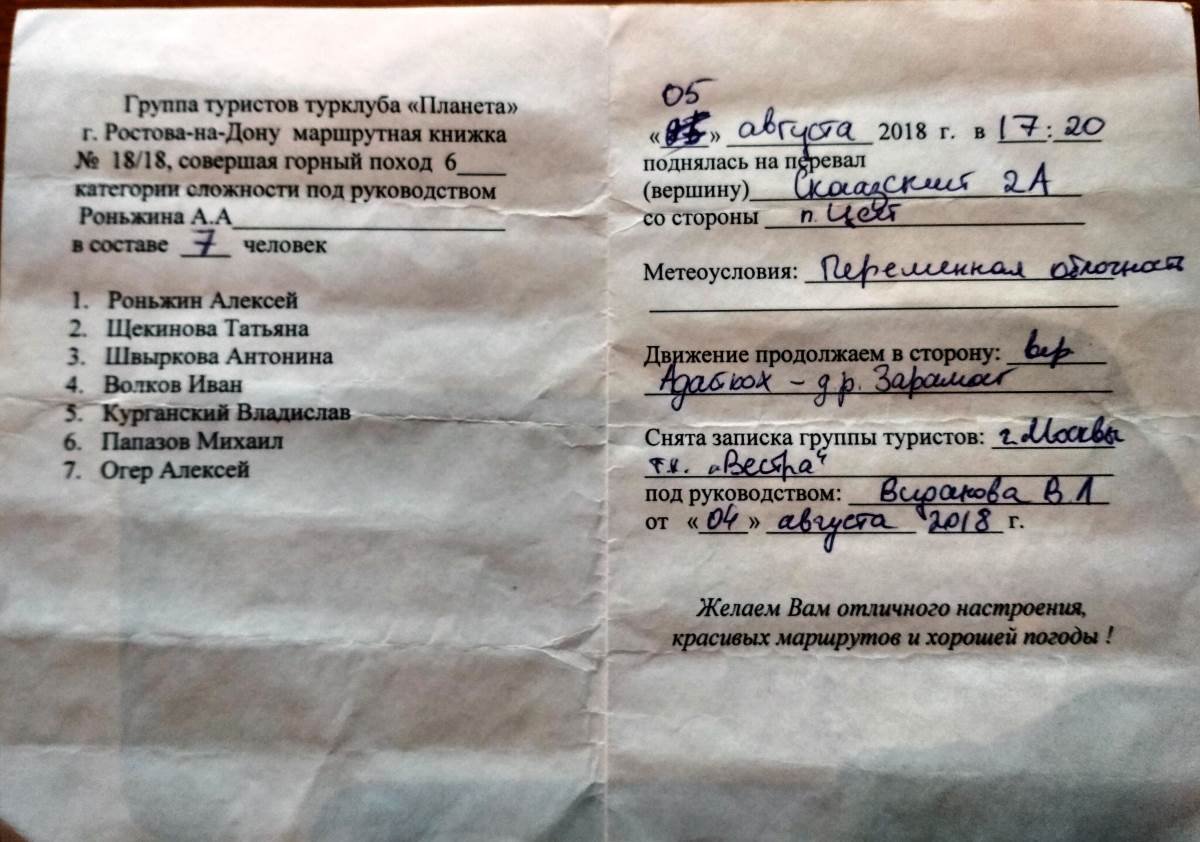 Группа туристов турклуба «Планета»
г. Ростова-на-Дону маршрутная книжка
№ 18/18, совершая горный поход 6____
категории сложности под руководством
Роньжина А.А
в составе 7 человек
1. Роньжин Алексей
2. Щекинова Татьяна
3. Швыркова Антонина
4. Волков Иван
5. Курганский Владислав
6. Папазов Михаил
7. Огер Алексей
05
« » августа 2018 г. в 17:20
поднялась на перевал
(вершину) Сказский 2А
со стороны п. Цей
Метеоусловия: Переменная облочность
Движение продолжаем в сторону: вер
Адайхох - д.р. Зарамаг
Снята записка группы туристов: г. Москвы
т.к. "Вестра"
под руководством: В.Л
от «04» августа 2018 г.
Желаем Вам отличного настроения,
красивых маршрутов и хорошей погоды !